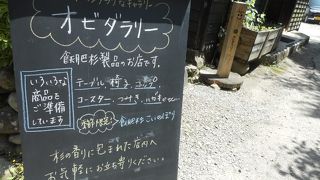 オビダラリー
飫肥杉製品のお店です。
いろいろな
商品を
ご準備
しています
テーブル、椅子、コップ
コースター、つみき、
飫肥杉こいのぼり
杉の香りに包まれた店内へ
お気軽にお立ち寄りください